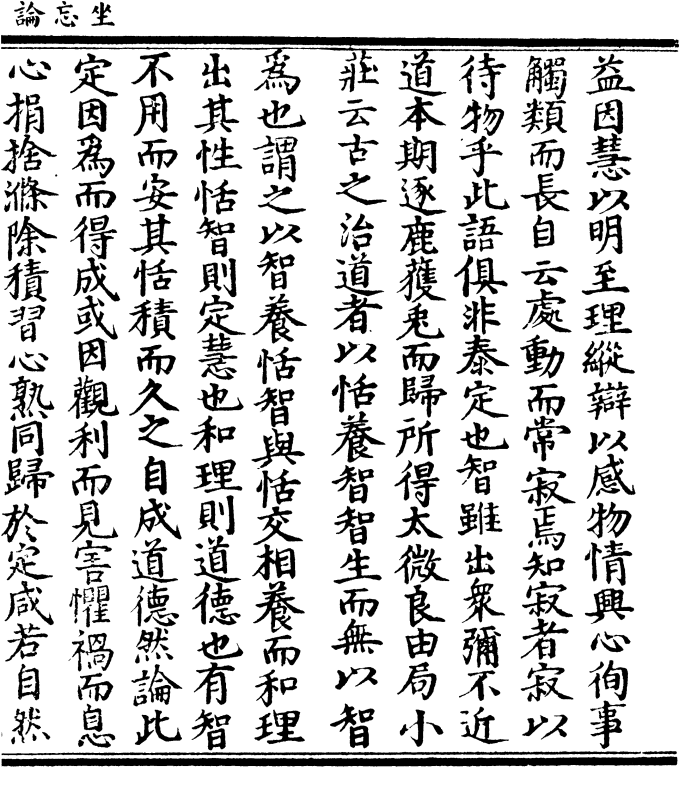 坐忘論
益因慧以明至理縱辯以感物情興心徇事
觸類而長自云處動而常寂焉知寂者寂以
待物乎此語俱非泰定也智雖出衆彌不近
道本期逐鹿獲兎而歸所得太微良由局小
莊云古之治道者以恬養智智生而無以智
爲也謂之以智養恬智與恬交相養而和理
出其性恬智則定慧也和理則道德也有智
不用而安其恬積而久之自成道德然論此
定因爲而得成或因觀利而見害懼禍而息
心捐捨滌除積習心熟同歸於定咸若自然